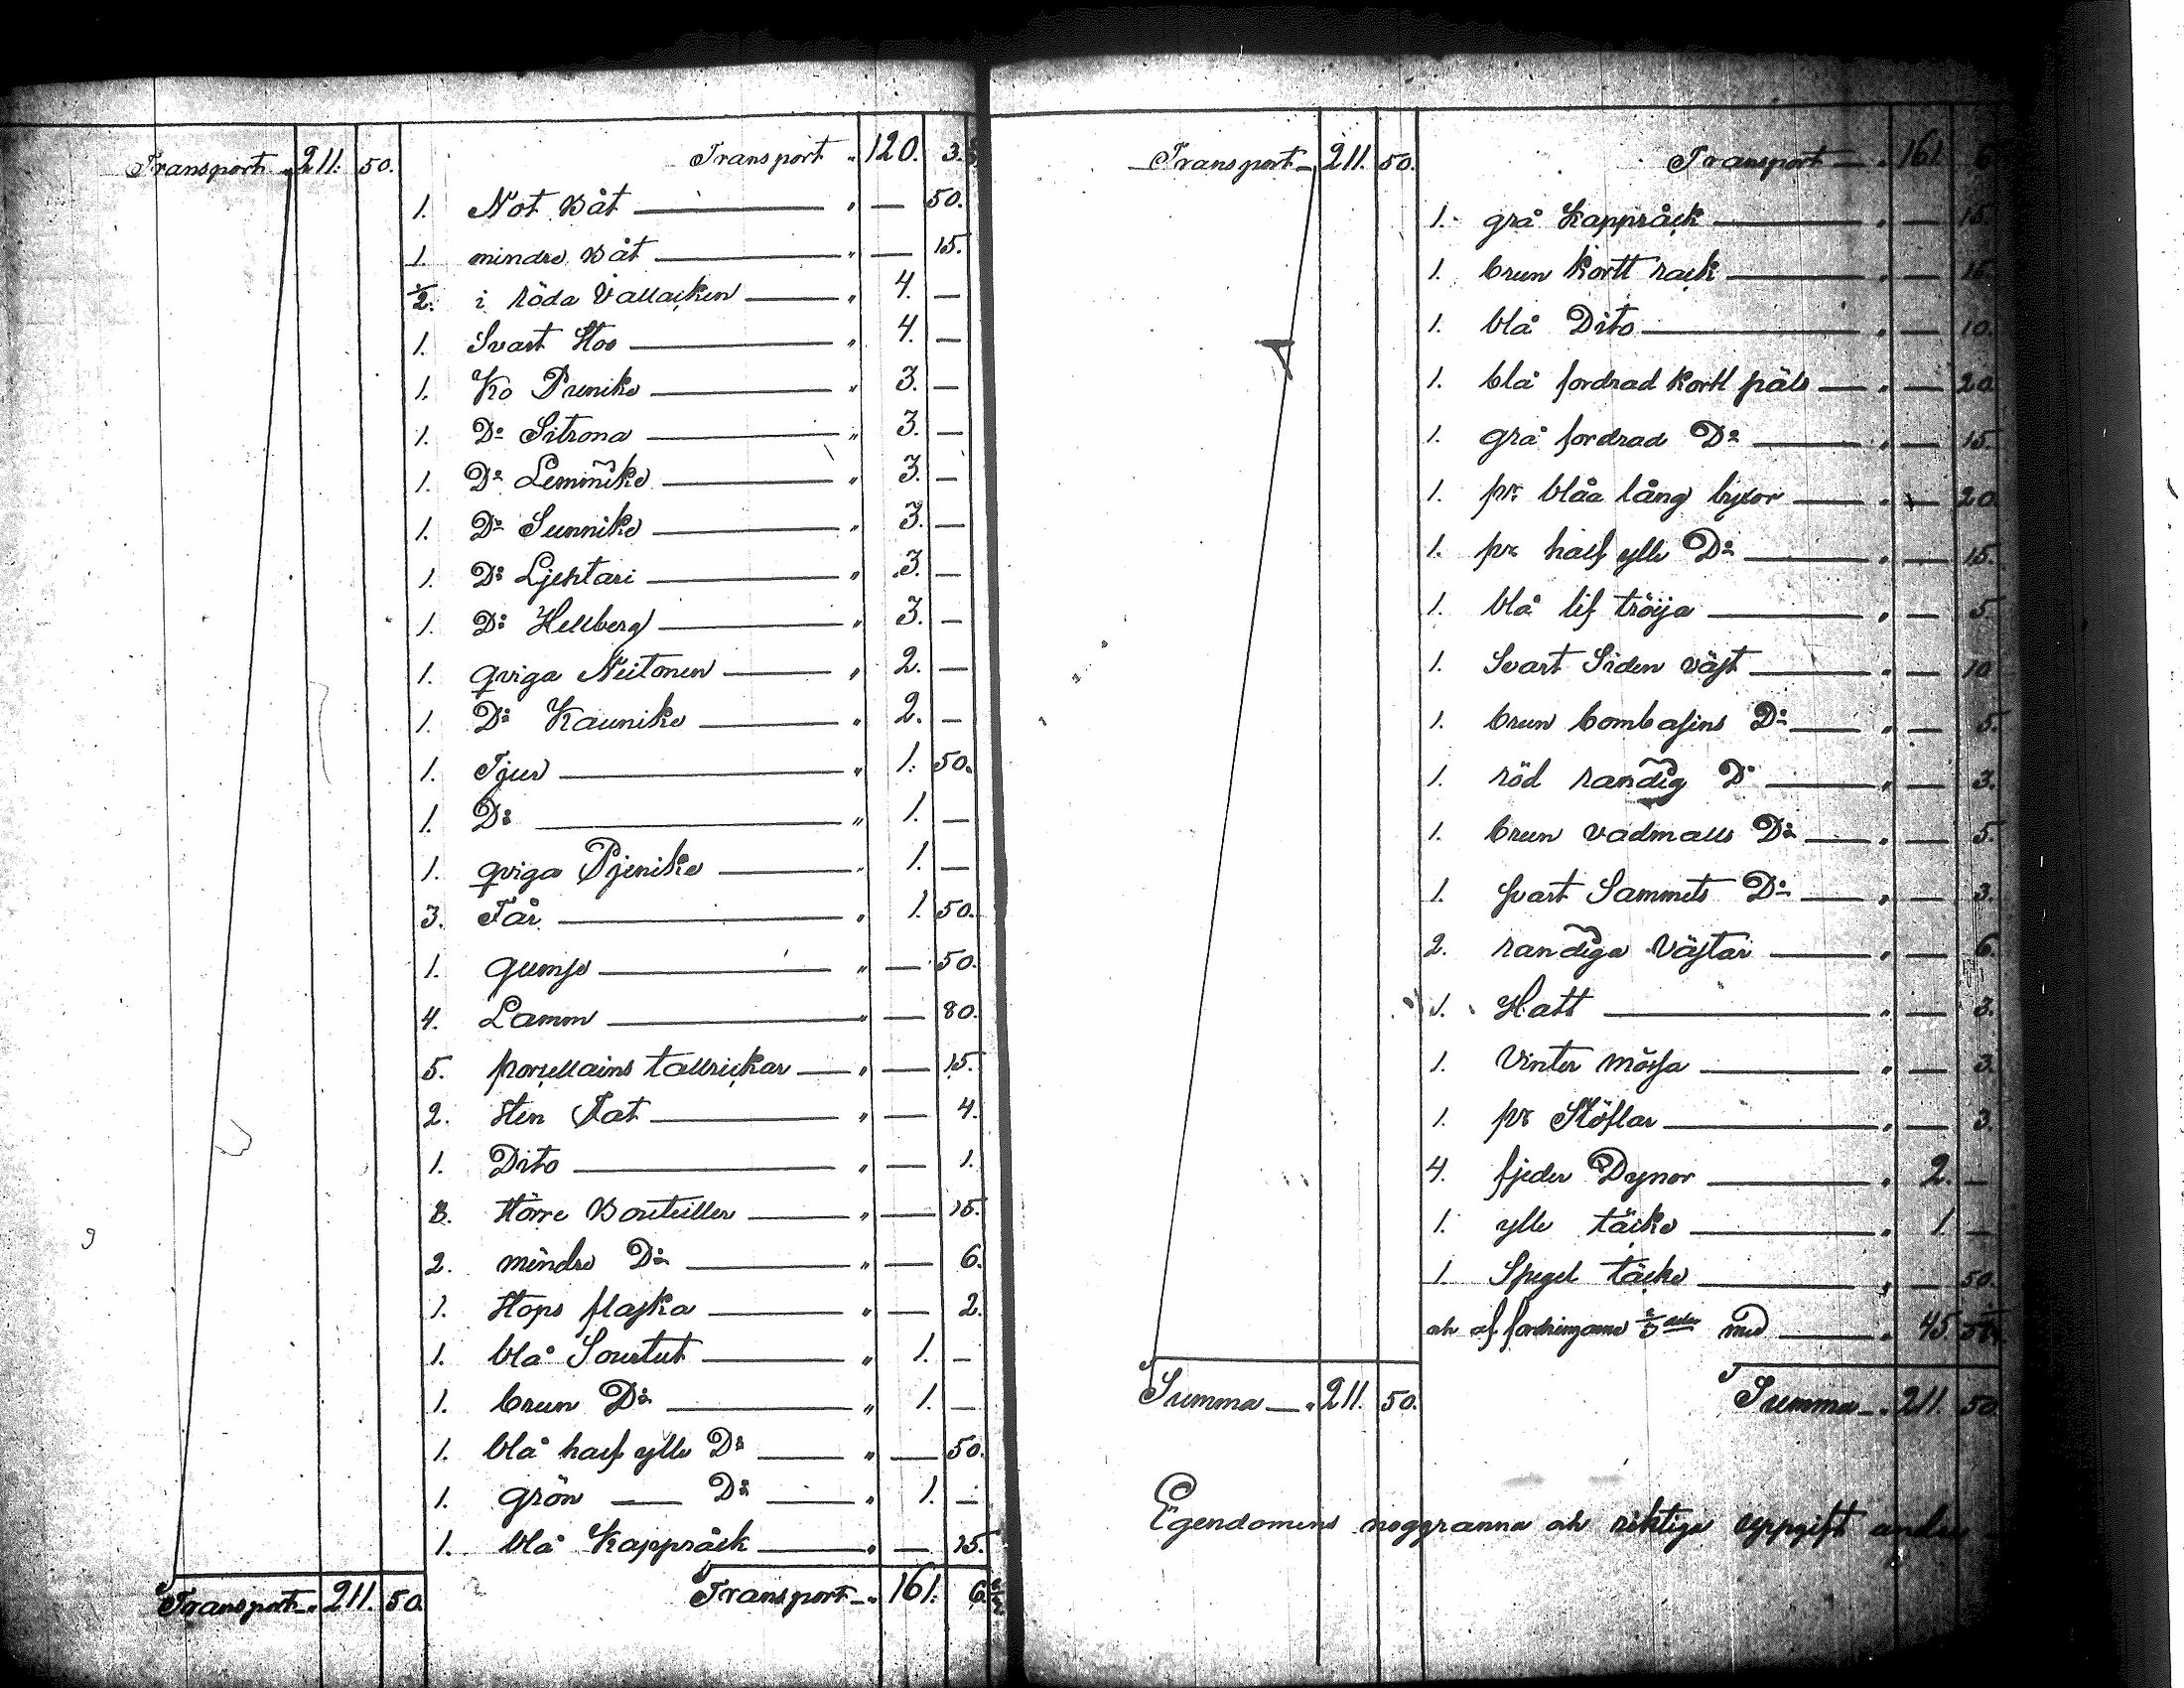 Transport " 211. 50. Transport " 120. 3.
1. Not Båt — " — 50.
1. mindre Båt — " — 15.
1/2. i röda Vallacken — " 4. —
1. Svart Stoo — " 4. —
1. Ko Prunike — " 3. —
1. D:o Sitrona — " 3. —
1. D:o Lemmike — " 3. —
1. D:o Sunnike — " 3. —
1. D:o Ljehtari — " 3. —
1. D:o Hellberg — " 3. —
1. qviga Neitonen — " 2. —
1. D:o Kaunike — " 2. —
1. Tjur — " 1. 50.
1. D:o — " 1. —
1. qviga Pjenike — " 1. —
3. Får — " 1. 50.
1. gumse — " — 50.
4. Lamm — " — 80.
5. porcellains tallrickar — " — 15.
2. sten Fat — " — 4.
1. Dito — " — 1.
3. större Bouteiller — " — 15.
2. mindre D:o — " — 6.
1. Stops flaska — " — 2.
1. blå Sourtut — " 1. —
1. brun D:o — " 1. —
1. blå half ylle D:o — " — 50.
1. grön — D:o — " 1. —
1. blå Kappråck — " — 25.
Transport " 211. 50. Transport " 161. 6 1/2
Transport " 211. 50. Transport " 161. 6
1. grå Kappråck — " — 15.
1. brun kortt rack — " — 15.
1. blå Dito — " — 10.
1. blå fordrad kortt päls — " — 20.
1. grå fordrad D:o — " — 15.
1. pr blåa lång byxor — " — 20.
1. pr half ylle D:o — " — 15.
1. blå lif tröija — " — 5.
1. Svart Siden väst — " — 10
1. brun bombasins D:o — " — 5.
1. röd randig D:o — " — 3.
1. brun vadmalls D:o — " — 5.
1. svart Sammets D:o — " — 3.
2. randiga Västar — " — 6.
1. Hatt — " — 3.
1. Vinter mössa — " — 3.
1. pr Stöflar — " — 3.
4. fjeder Dynor — " 2. —
1. ylle täcke — " 1. —
1. Spegel täcke — " — 50.
och af fordringarne med — " 45.
Summa — " 211. 50. Summa — " 211. 50.
Egendomens noggranna och riktiga uppgift